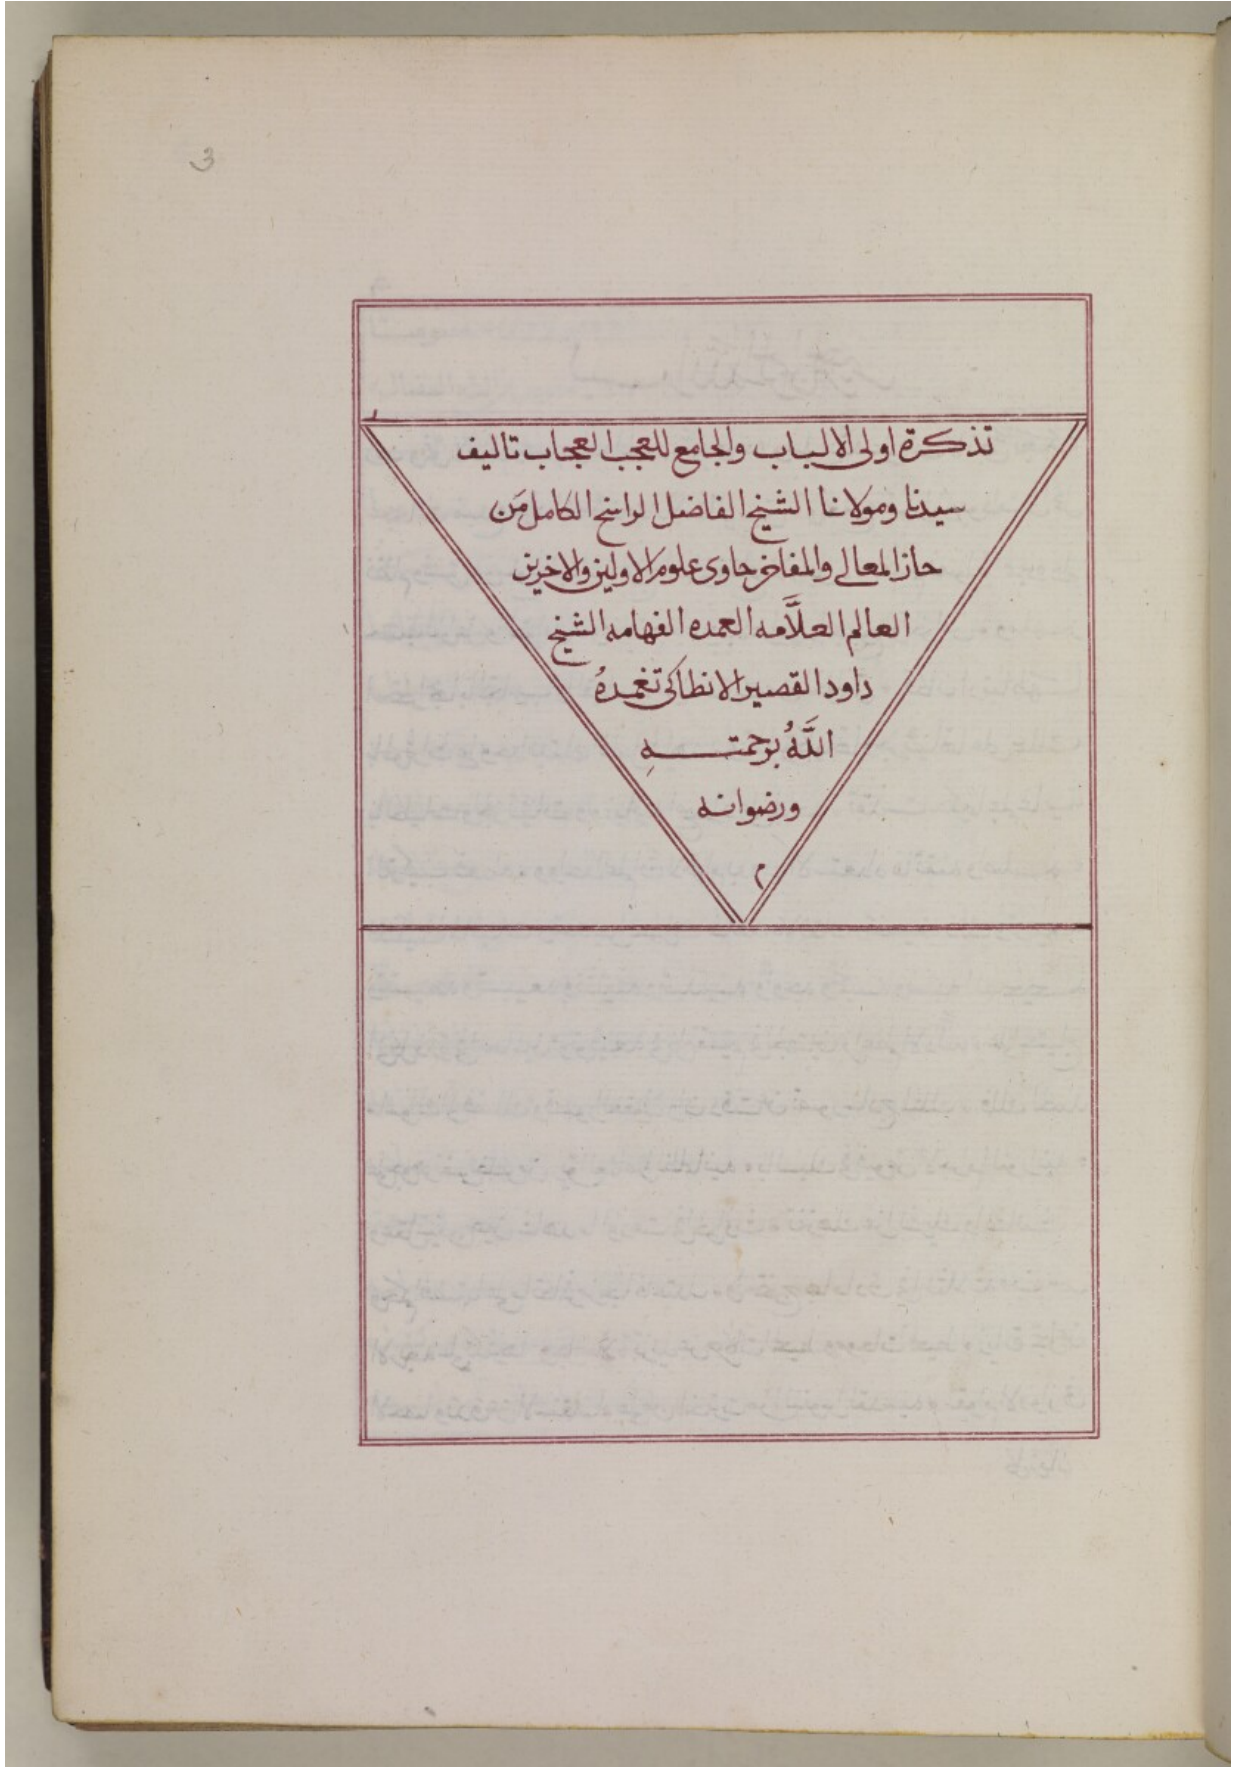 3
تذكرة اولى الالباب والجامع للعجب العجاب تاليف
سيدنا ومولانا الشيخ الفاضل الراسخ الكامل مَن
حاز المعالي والمفاخر حاوى علوم الاولين والاخرين
العالم العلاَّمه العمده الفهامه الشيخ
داود القصير الانطاكى تغمدهُ
اللَّهُ برحمتـــــهِ
ورضوانه
م